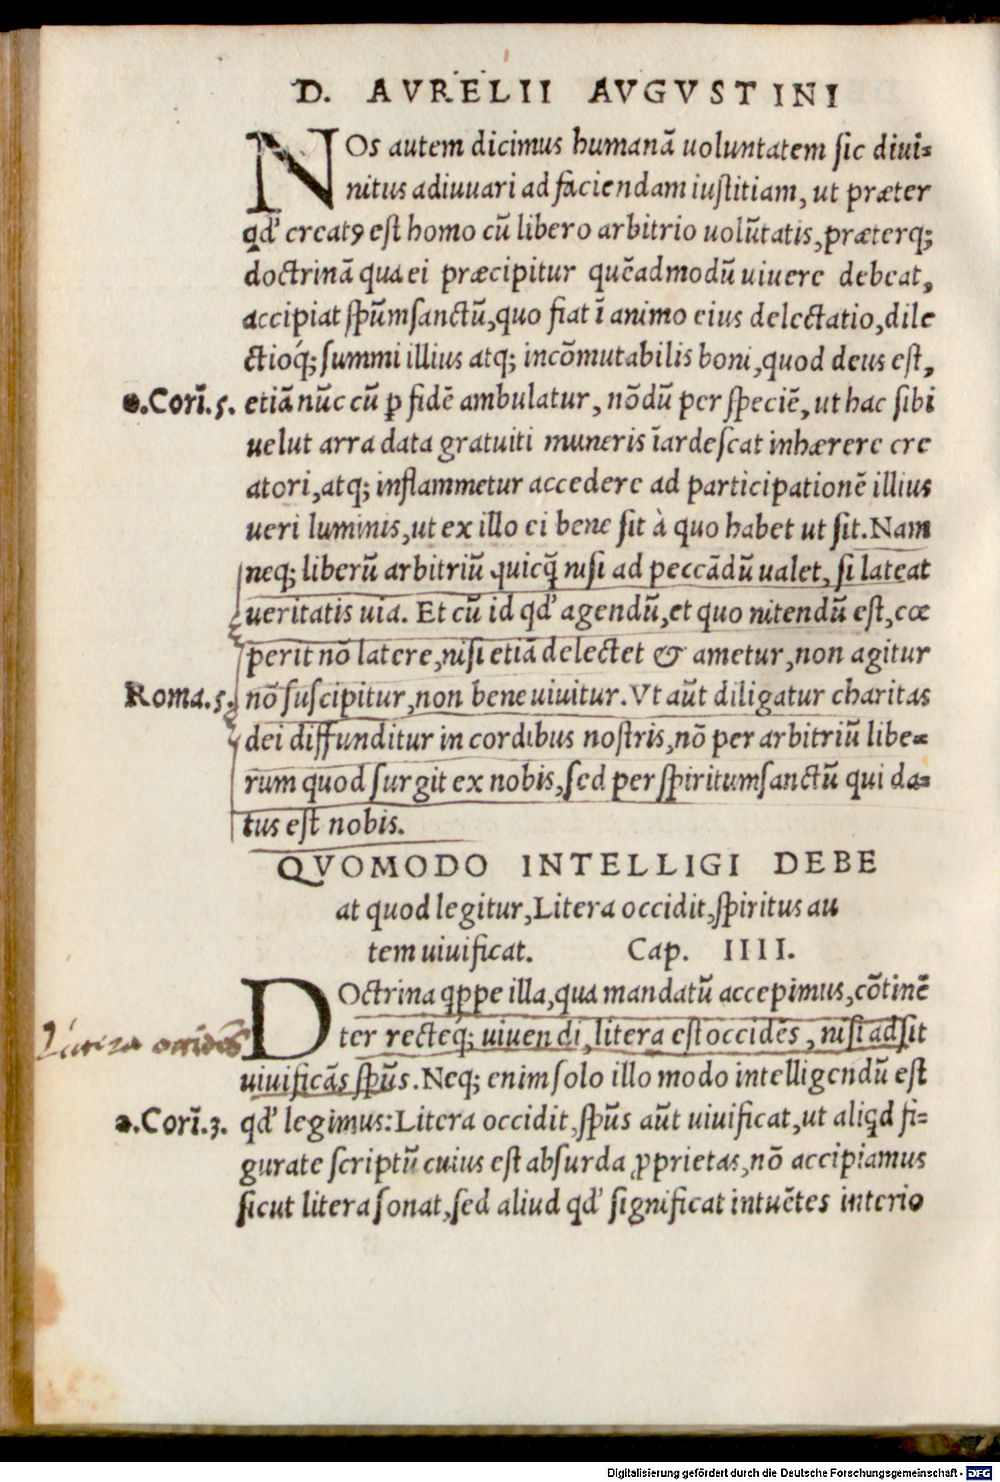 D. AVRELII AVGVSTINI
NOs autem dicimus humanā uoluntatem sic diui-
nitus adiuuari ad faciendam iustitiam, ut præter
qđ creatꝰ est homo cū libero arbitrio uolūtatis, præterq;
doctrinā qua ei præcipitur quēadmodū uiuere debeat,
accipiat spūmsanctū, quo fiat ī animo eius delectatio, dile
ctioq́; summi illius atq; incōmutabilis boni, quod deus est,
2.Corī.5. etiā nūc cū ꝑ fidē ambulatur, nōdū per speciē, ut hac sibi
uelut arra data gratuiti muneris īardescat inhærere cre
atori, atq; inflammetur accedere ad participationē illius
ueri luminis, ut ex illo ei bene sit à quo habet ut sit. Nam
neq; liberū arbitriū quicq̄ nisi ad peccādū ualet, si lateat
ueritatis uia. Et cū id qđ agendū, et quo nitendū est, cœ
perit nō latere, nisi etiā delectet & ametur, non agitur
Roma.5. nō suscipitur, non bene uiuitur. Vt aūt diligatur charitas
dei diffunditur in cordibus nostris, nō per arbitriū libe-
rum quod surgit ex nobis, sed per spiritumsanctū qui da-
tus est nobis.
QVOMODO INTELLIGI DEBE
at quod legitur, Litera occidit, spiritus au
tem uiuificat. Cap. IIII.
DOctrina qppe illa, qua mandatū accepimus, cōtinē
Litera occidēs
ter recteq́; uiuendi, litera est occidēs, nisi adsit
uiuificās spūs. Neq; enim solo illo modo intelligendū est
2.Corī.3. qđ legimus: Litera occidit, spūs aūt uiuificat, ut aliqd fi-
gurate scriptū cuius est absurda ꝓprietas, nō accipiamus
sicut litera sonat, sed aliud qđ significat intuētes interio
Digitalisierung gefördert durch die Deutsche Forschungsgemeinschaft - DFG